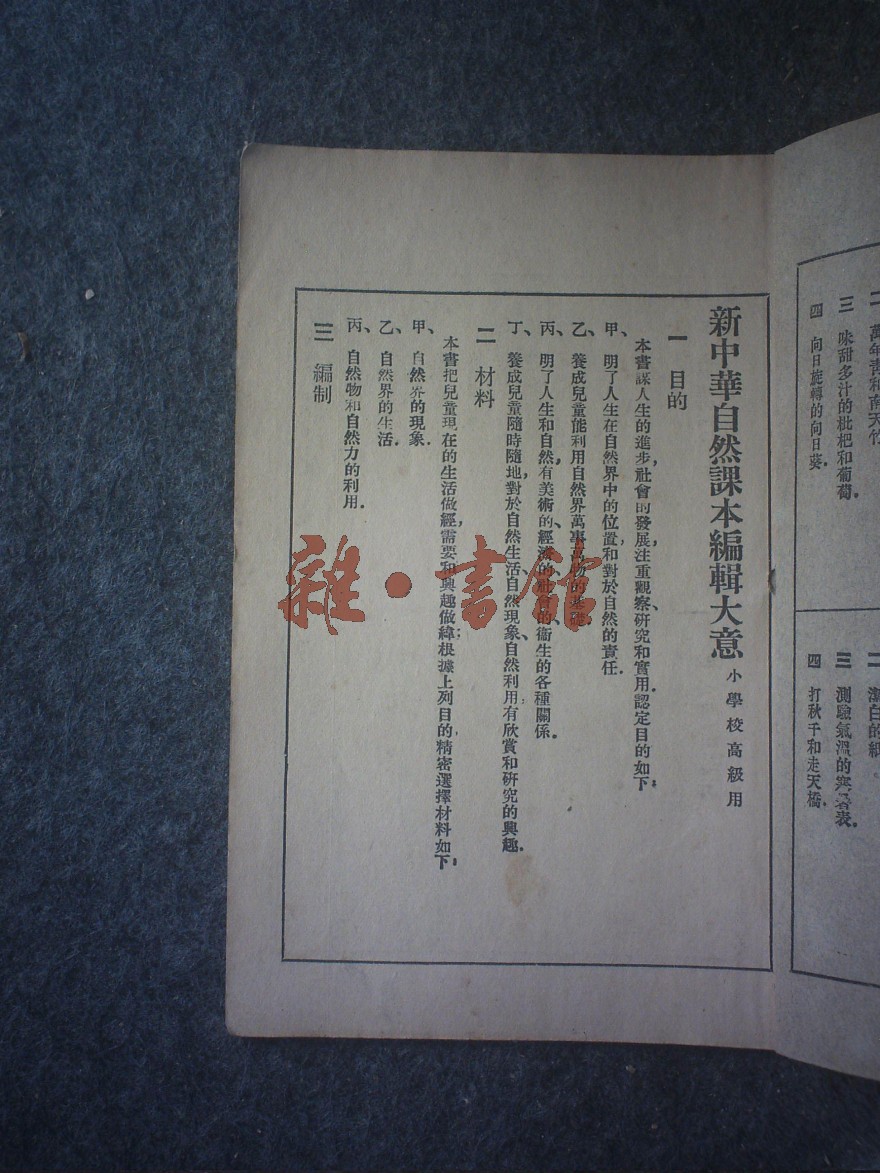 新中華自然課本編輯大意 小學校高級用
一 目的
本書謀人生的進步,社會的發展,注重觀察、研究和實用,認定目的如下:
甲、明了人生在自然界中的位置和對於自然的責任.
乙、養成兒童能利用自然界萬事萬物的基礎.
丙、明了人生和自然,有美術的、經濟的、社會的、衞生的各種關係.
丁、養成兒童隨時隨地,對於自然生活、自然現象、自然利用,有欣賞和研究的興趣.
二 材料
本書把兒童現在的生活做經,需要和興趣做緯;根據上列目的,精密選擇材料如下:
甲、自然界的現象.
乙、自然界的生活.
丙、自然物和自然力的利用.
三 編制
萬年青和南天竹
三 味甜多汁的枇杷和葡萄.
四 向日旋轉的向日葵.
潔白的紙
三 測驗氣溫的寒暑表.
四 打秋千和走天橋.
雜·書館